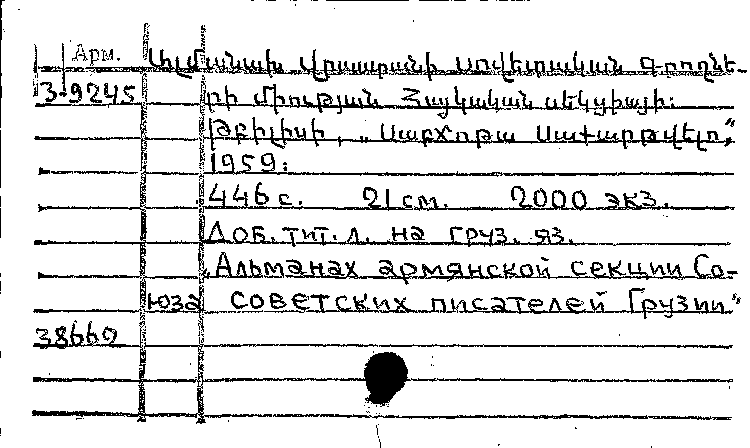 Арм. Ալմանախ Վրաստանի սովետական գրողնե-
3-9245 րի միության Հայկական սեկցիայի:
Թբիլիսի, „Սաբճոթա Սաքարթվելո",
1959:
446 с. 21 см. 2000 экз.
Доб. тит. л. на груз. яз.
„Альманах армянской секции Со-
юза советских писателей Грузии"
38660